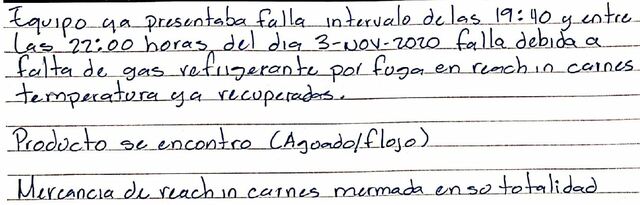 Equipo ya presentaba falla intervalo de las 19:40 y entre
las 22:00 horas del dia 3-NOV-2020 falla debida a
falta de gas refrigerante por fuga en reach in carnes
temperatura ya recuperadas.
Producto se encontro (Aguado/flojo)
Mercancia de reach in carnes mermada en so totalidad